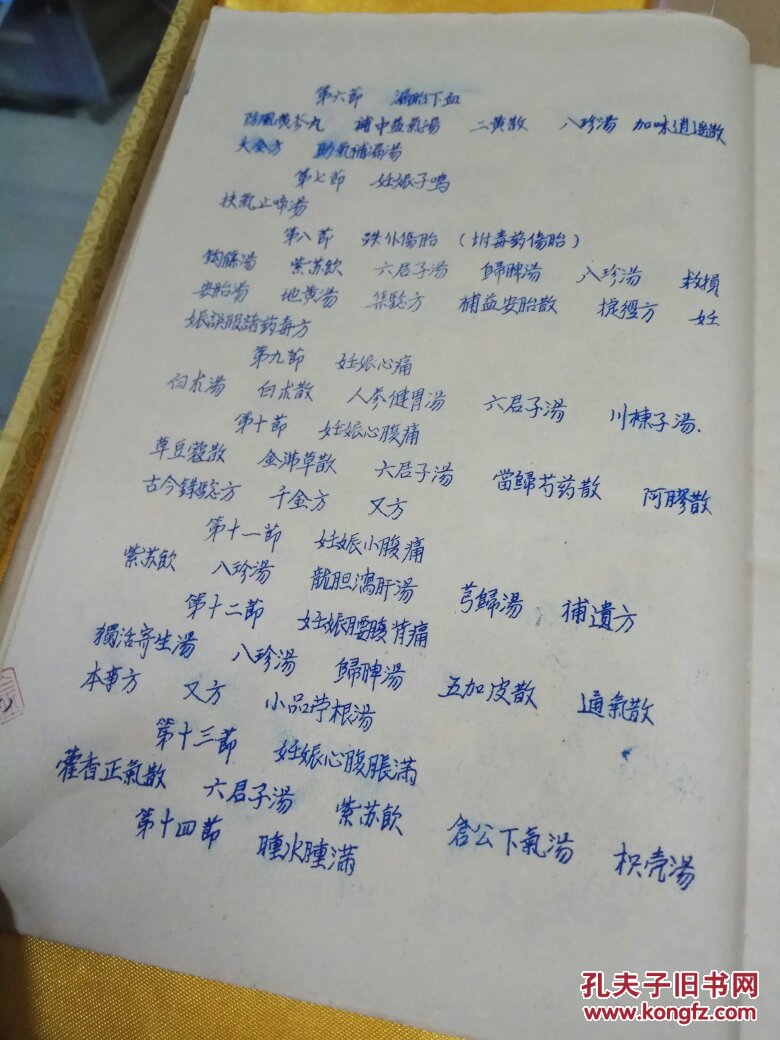 第六節 漏胎下血
防風黄芩丸 補中益氣湯 二黄散 八珍湯 加味逍遥散
大全方 助氣補漏湯
第七節 妊娠子鳴
扶氣止啼湯
第八節 跌仆傷胎（討毒药傷胎）
鈎藤湯 紫苏飲 六君子湯 歸脾湯 八珍湯 救損
安胎湯 地黄湯 集驗方 補益安胎散 方 妊
娠誤服諸药毒方
第九節 妊娠心痛
白朮湯 白朮散 人参健胃湯 六君子湯 川楝子湯.
第十節 妊娠心腹痛
草豆蔻散 金沸草散 六君子湯 當歸芍药散 阿膠散
古今錄驗方 千金方 又方
第十一節 妊娠小腹痛
紫苏飲 八珍湯 龍胆瀉肝湯 芎歸湯 補遺方
第十二節 妊娠腰腹背痛
獨活寄生湯 八珍湯 歸脾湯 五加皮散 通氣散
本事方 又方 小品苧根湯
第十三節 妊娠心腹脹满
藿香正氣散 六君子湯 紫苏飲 倉公下氣湯 枳壳湯
第十四節 腫水腫满
孔夫子旧书网
www.kongfz.com